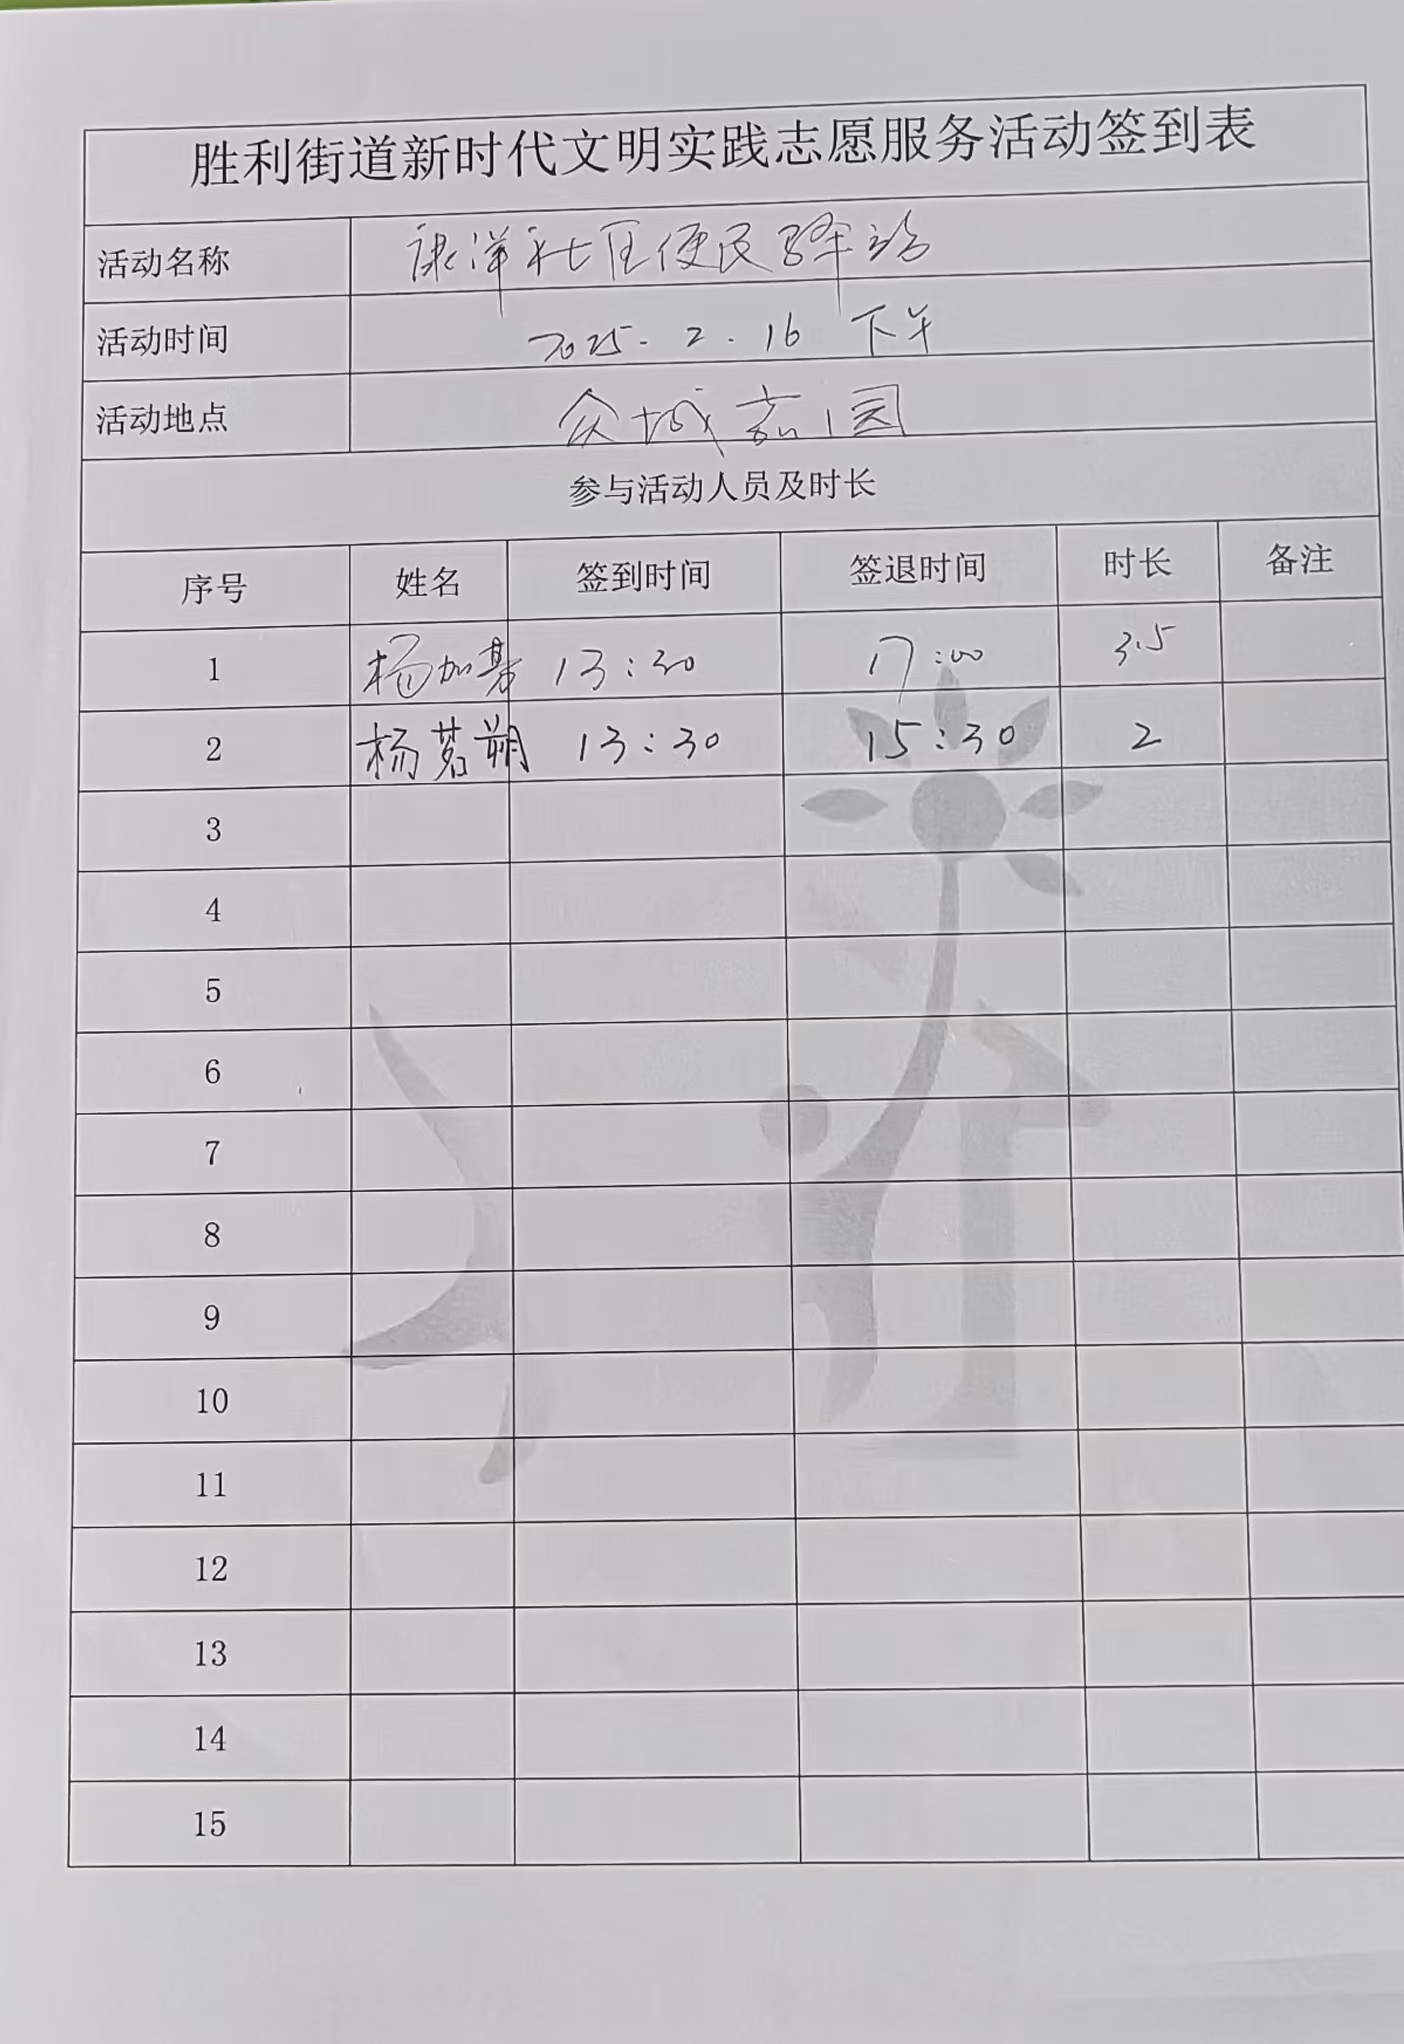 胜利街道新时代文明实践志愿服务活动签到表
活动名称 康洋社区便民驿站
活动时间 2025.2.16 下午
活动地点 众城嘉园
参与活动人员及时长
序号 姓名 签到时间 签退时间 时长 备注
1 杨加基 13:30 17:00 3.5
2 杨茗朔 13:30 15:30 2
3
4
5
6
7
8
9
10
11
12
13
14
15